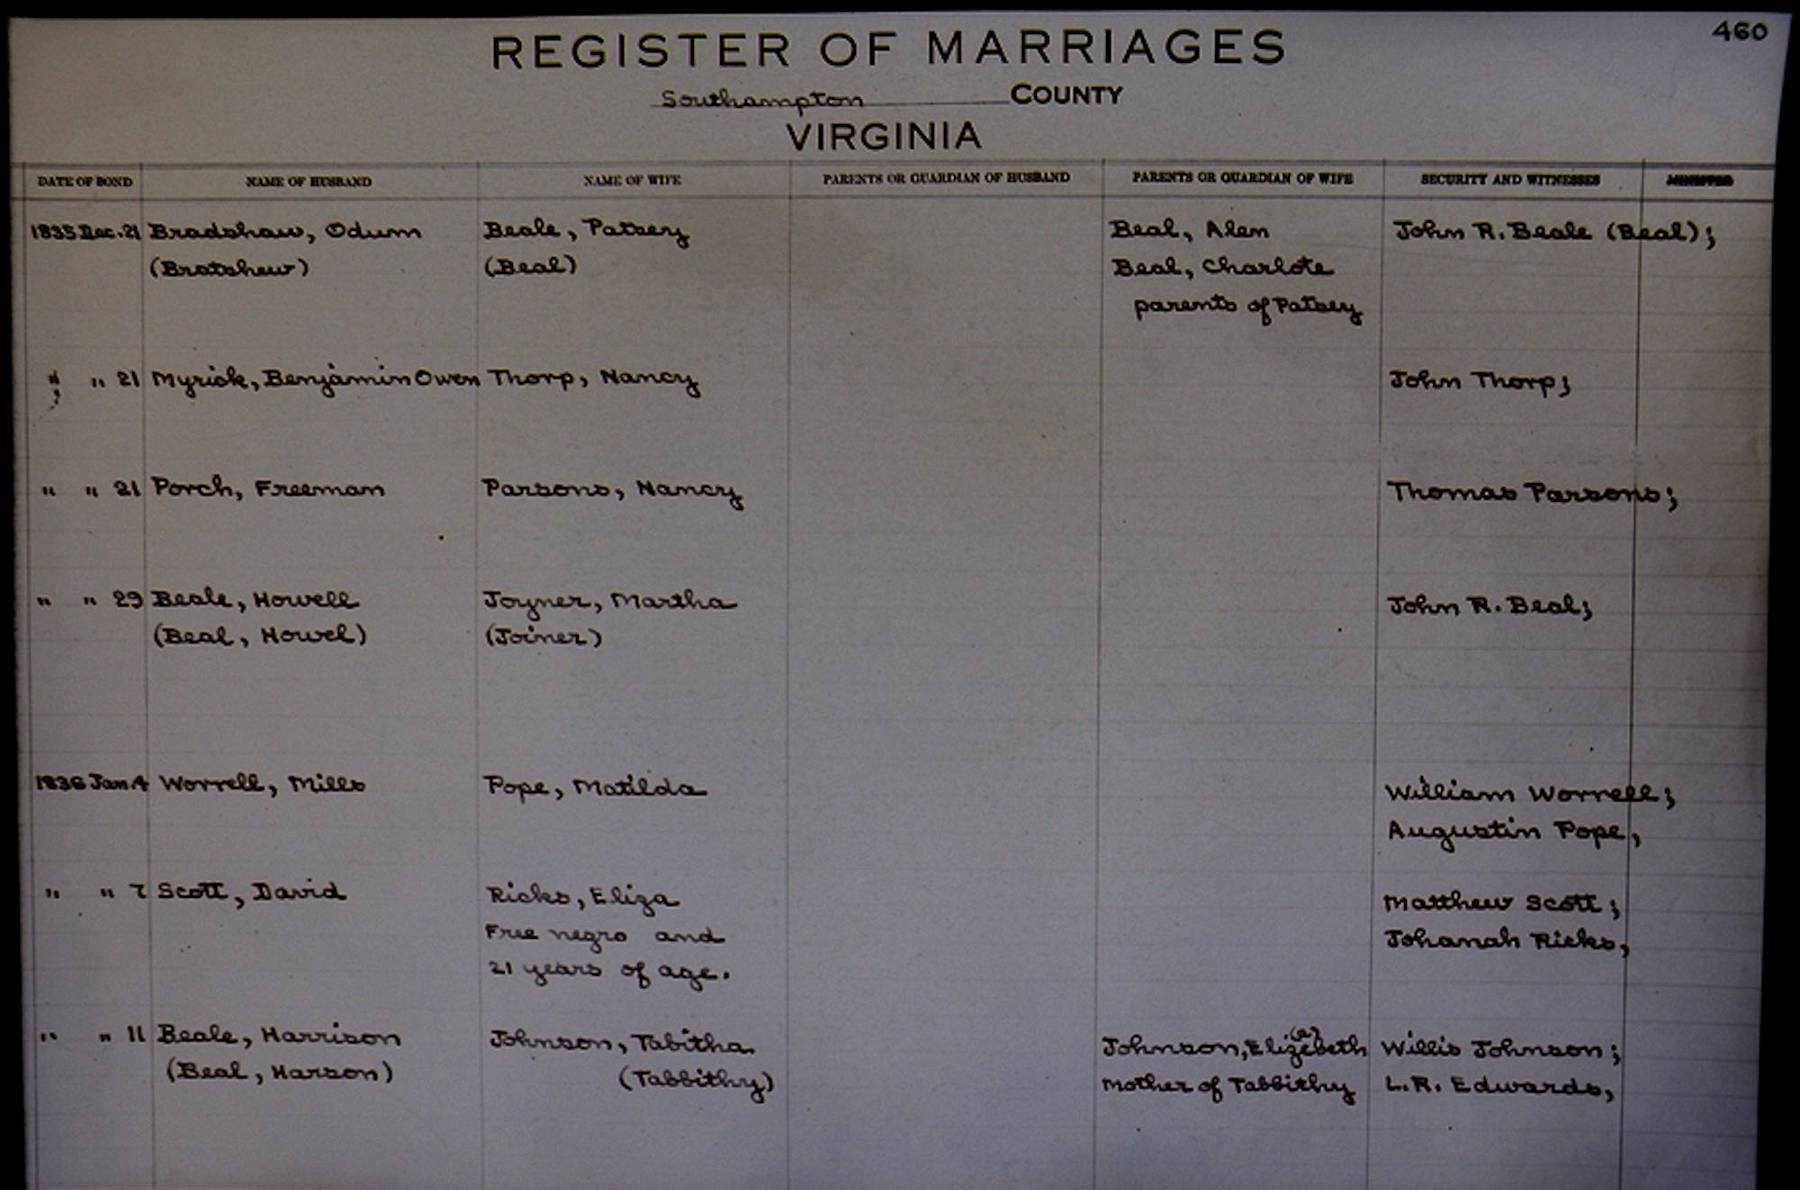 460
REGISTER OF MARRIAGES
Southampton COUNTY
VIRGINIA
DATE OF BOND NAME OF HUSBAND NAME OF WIFE PARENTS OR GUARDIAN OF HUSBAND PARENTS OR GUARDIAN OF WIFE SECURITY AND WITNESSES MINISTER
1835 Dec. 21 Bradshaw, Odum Beale, Patsey Beal, Alen John R. Beale (Beal);
(Bratshew) (Beal) Beal, Charlote
parents of Patsey
" " 21 Myrick, Benjamin Owen Thorp, Nancy John Thorp;
" " 21 Porch, Freeman Parsons, Nancy Thomas Parsons;
" " 29 Beale, Howell Joyner, Martha John R. Beal;
(Beal, Howel) (Joiner)
1836 Jan. 4 Worrell, Mills Pope, Matilda William Worrell;
Augustin Pope,
" " 7 Scott, David Ricks, Eliza Matthew Scott;
Free negro and Johanah Ricks,
21 years of age.
" " 11 Beale, Harrison Johnson, Tabitha Johnson, Elizebeth (a) Willis Johnson;
(Beal, Harson) (Tabbithy) Mother of Tabbithy L. R. Edwards,